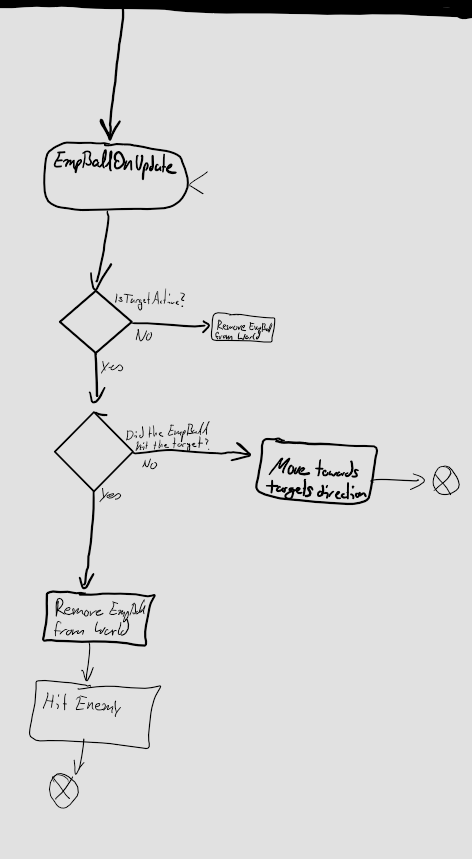 EmpBallOnUpdate
IsTargetActive?
NO
Remove EmpBall
from World
Yes
Did the EmpBall
hit the target?
NO
Move towards
targets direction
Yes
Remove EmpBall
from World
Hit Enemy